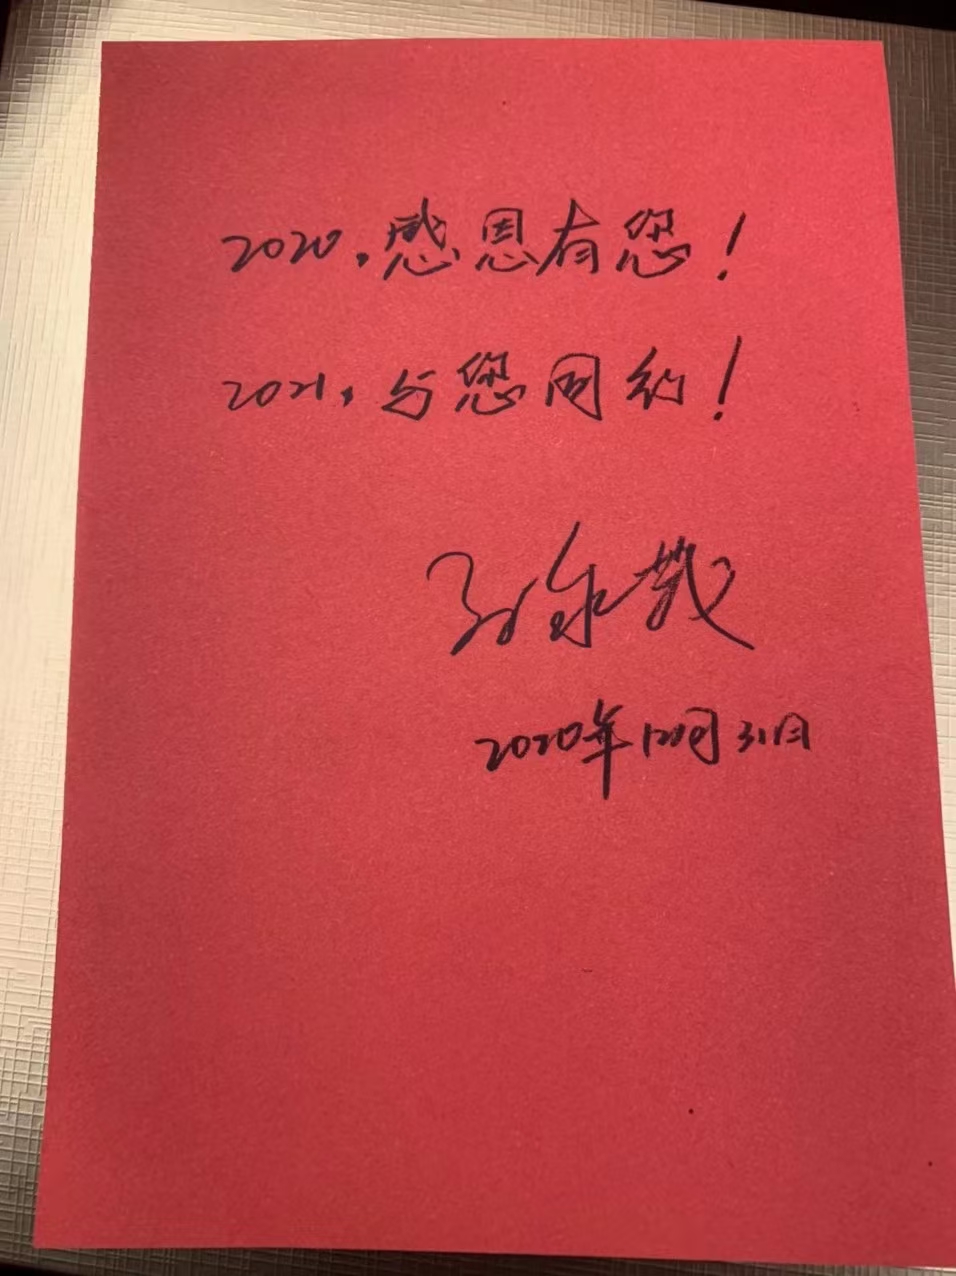 2020,感恩有您!
2021,与您同约!
2020年12月31日